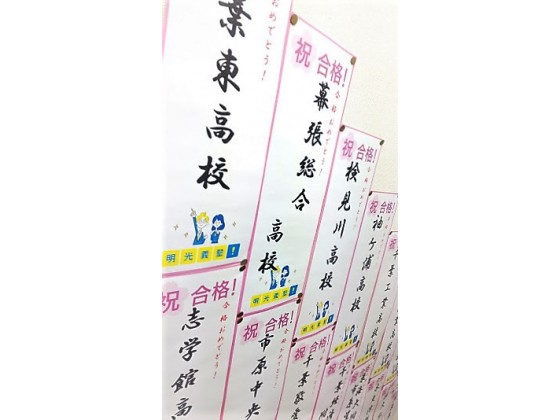 葉東高校
おめでとう！
明光義塾！
祝 合格！
合格おめでとう！
幕張総合 高校
明光義塾！
祝 合格！
合格おめでとう！
検見川高校
明光義塾！
祝 合格！
袖ケ浦高校
千葉工業高校
祝 合格！
合格おめでとう！
志学館高
祝 合格！
合格おめでとう！
市原中央
祝 合格！
千葉敬愛